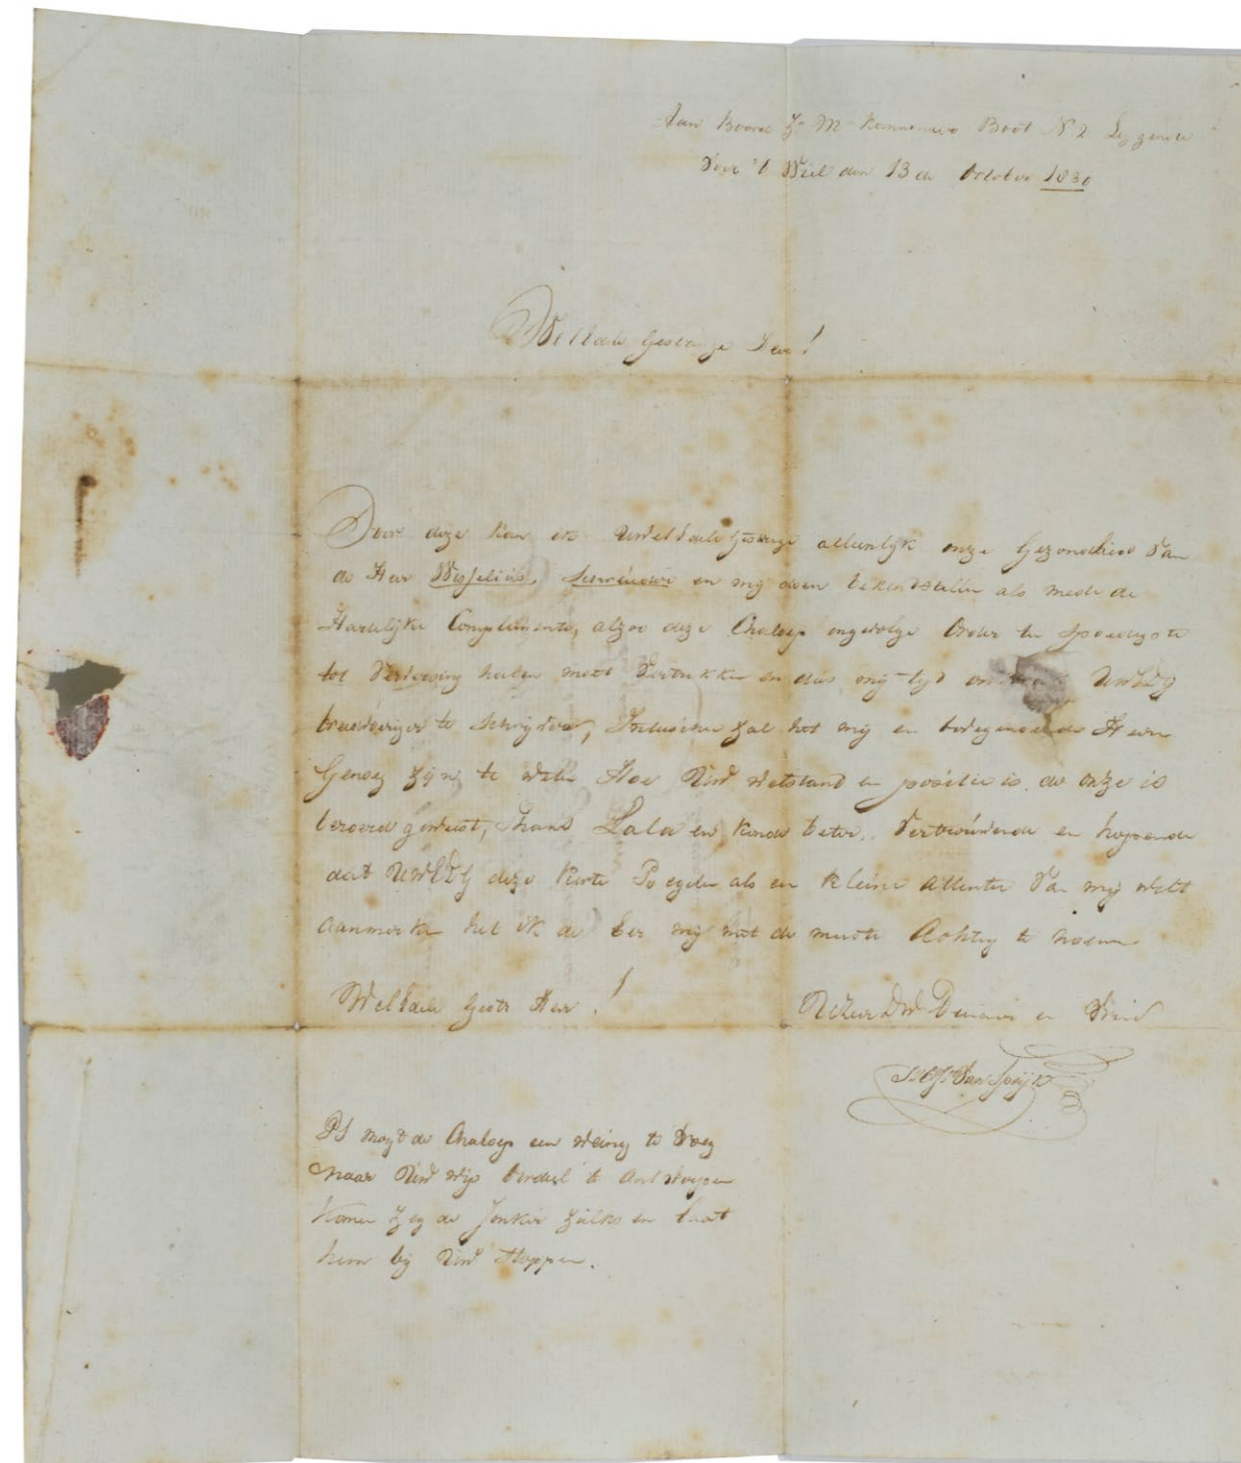 Aan Boord Zr M Kannonneer Boot N 2 Leggende
Voor 't Kiel den 13 de October 1830
WelEdele Gestrenge Heer!
Door deze kan ik UwelEdele Gestrenge alleenlijk onze Gezondheid van
de Heer Wesselius, en mij doen bekendstellen als mede de
Hartelijke Complimente, alzoo deze Chaloep ingevolge Order ten spoedigste
tot halen moet Vertrekken en dus mij tijd UwEDG
te schrijven, Intusschen zal het mij en Heeren
Genoeg zijn te weten Hoe Uw welstand en positie is, de onze is
geweest, thans Lala en konde beter. Vertrouwende en hopende
dat UwEDG deze korte Regelen als en kleine attentie van mij wilt
aanmerken heb ik de Eer mij met de meeste Achting te noemen
WelEdele Gestr Heer!
UEd DW Dienaar en Vriend
JCJ Van Speijk
PS mogt de Chaloep een weinig te Vroeg
naar Uw wijs oordeel te Antwerpen
komen zeg de Jonker zulks en laat
hem bij Uw stoppen.